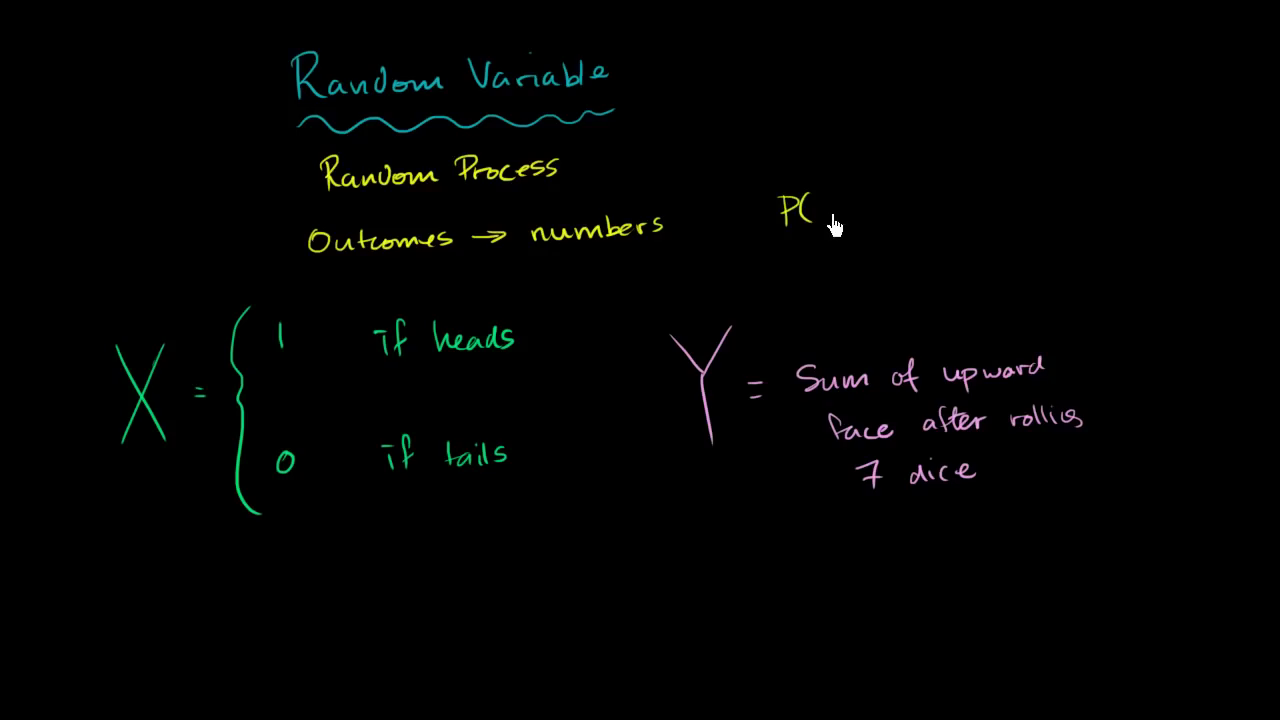 Random Variable
Random Process
Outcomes → numbers
P(
X = { 1 if heads
0 if tails
Y = Sum of upward
face after rolling
7 dice